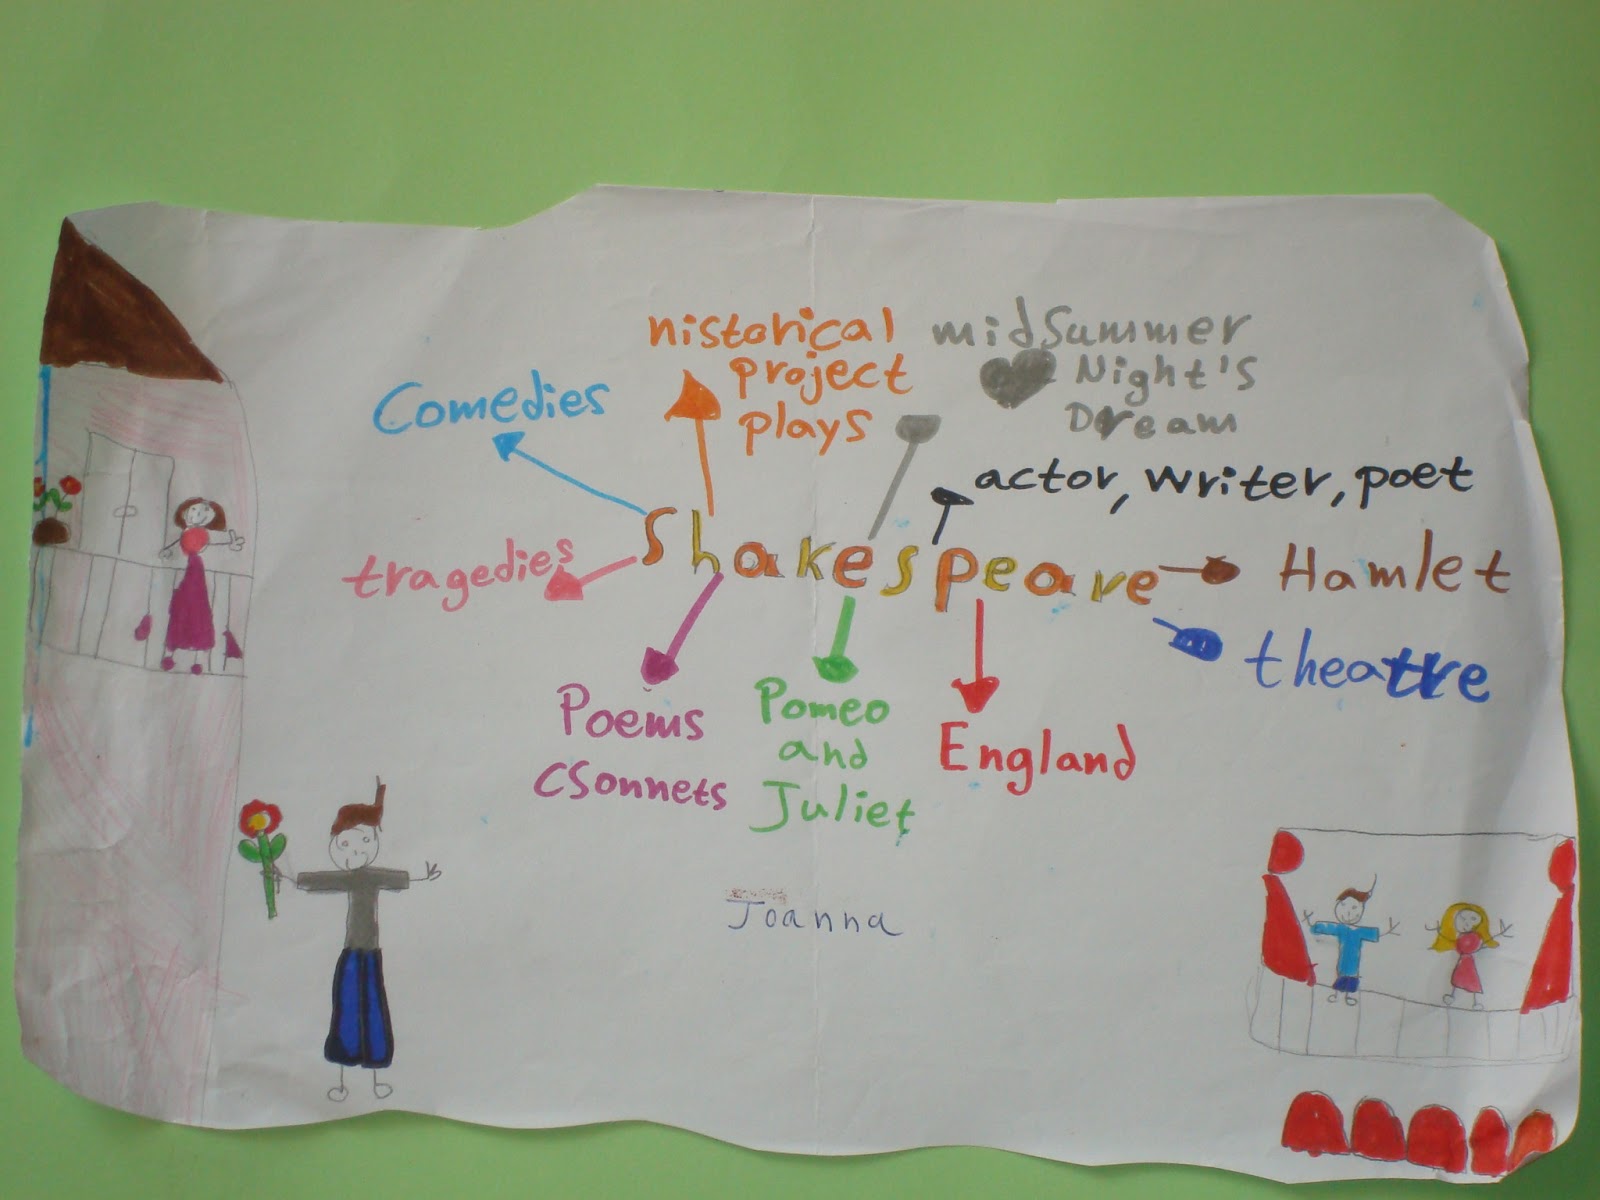 nistorical
project
plays
midsummer
Night's
Dream
Comedies
actor, writer, poet
Shakespeare
tragedies
Hamlet
theatre
Poems
CSonnets
Pomeo
and
Juliet
England
Joanna